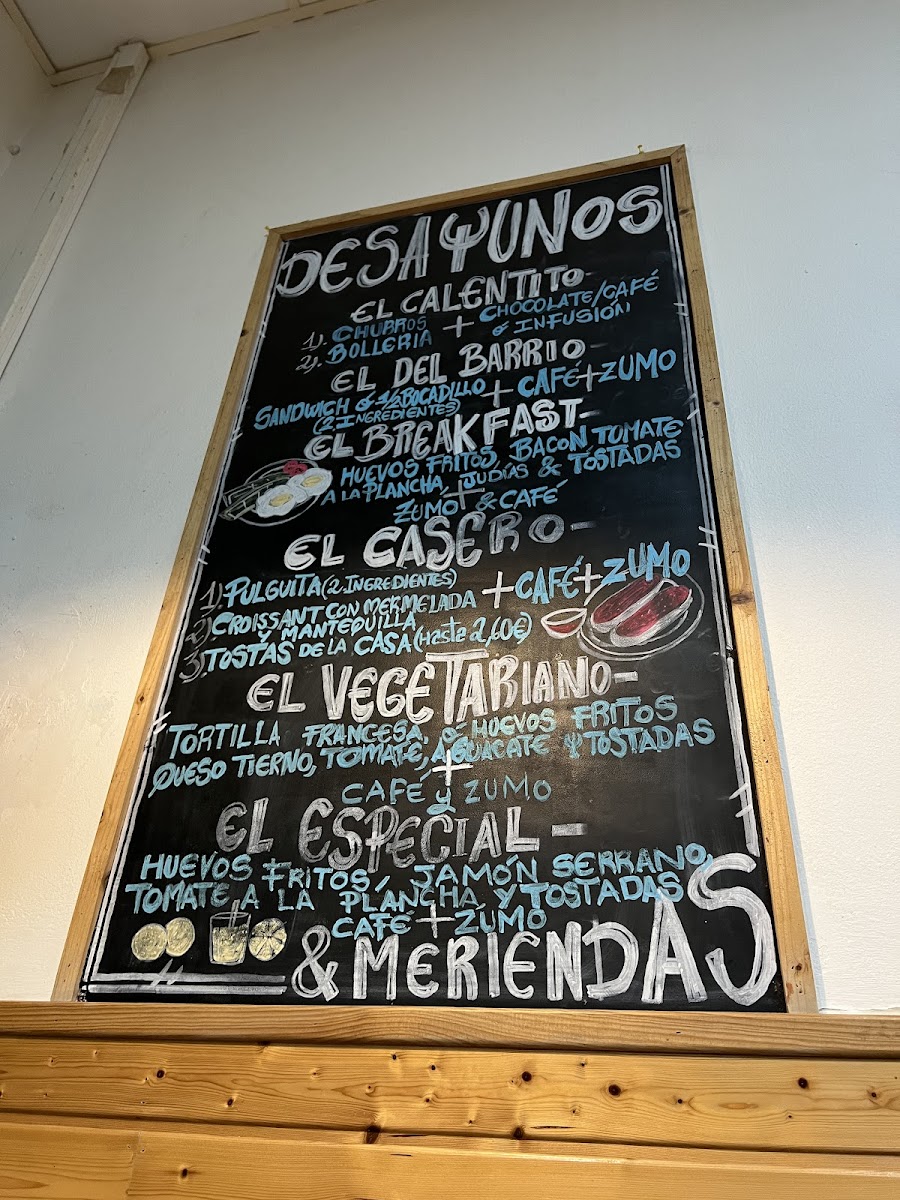 DESAYUNOS
EL CALENTITO-
1). CHURROS + CHOCOLATE/CAFÉ
2). BOLLERIA ó INFUSIÓN
EL DEL BARRIO-
SANDWICH ó 1/2 BOCADILLO + CAFÉ + ZUMO
(2 INGREDIENTES)
EL BREAKFAST-
HUEVOS FRITOS, BACON TOMATE
A LA PLANCHA, JUDÍAS & TOSTADAS
+
ZUMO & CAFÉ
EL CASERO-
1). PULGUITA (2.INGREDIENTES) + CAFÉ + ZUMO
2) CROISSANT CON MERMELADA
Y MANTEQUILLA
3). TOSTAS DE LA CASA (Hasta 2,60€)
EL VEGETARIANO-
TORTILLA FRANCESA, ó HUEVOS FRITOS
QUESO TIERNO, TOMATE, AGUACATE Y TOSTADAS
+
CAFÉ y ZUMO
EL ESPECIAL-
HUEVOS FRITOS, JAMÓN SERRANO,
TOMATE A LA PLANCHA Y TOSTADAS
CAFÉ + ZUMO
& MERIENDAS